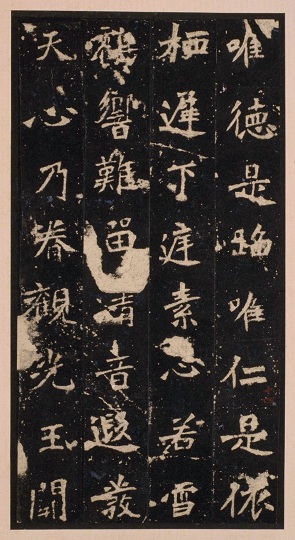 唯德是蹈唯仁是依
栖遲下庭素心若雪
鶴響難留清音遐發
天心乃眷觀光玉闕